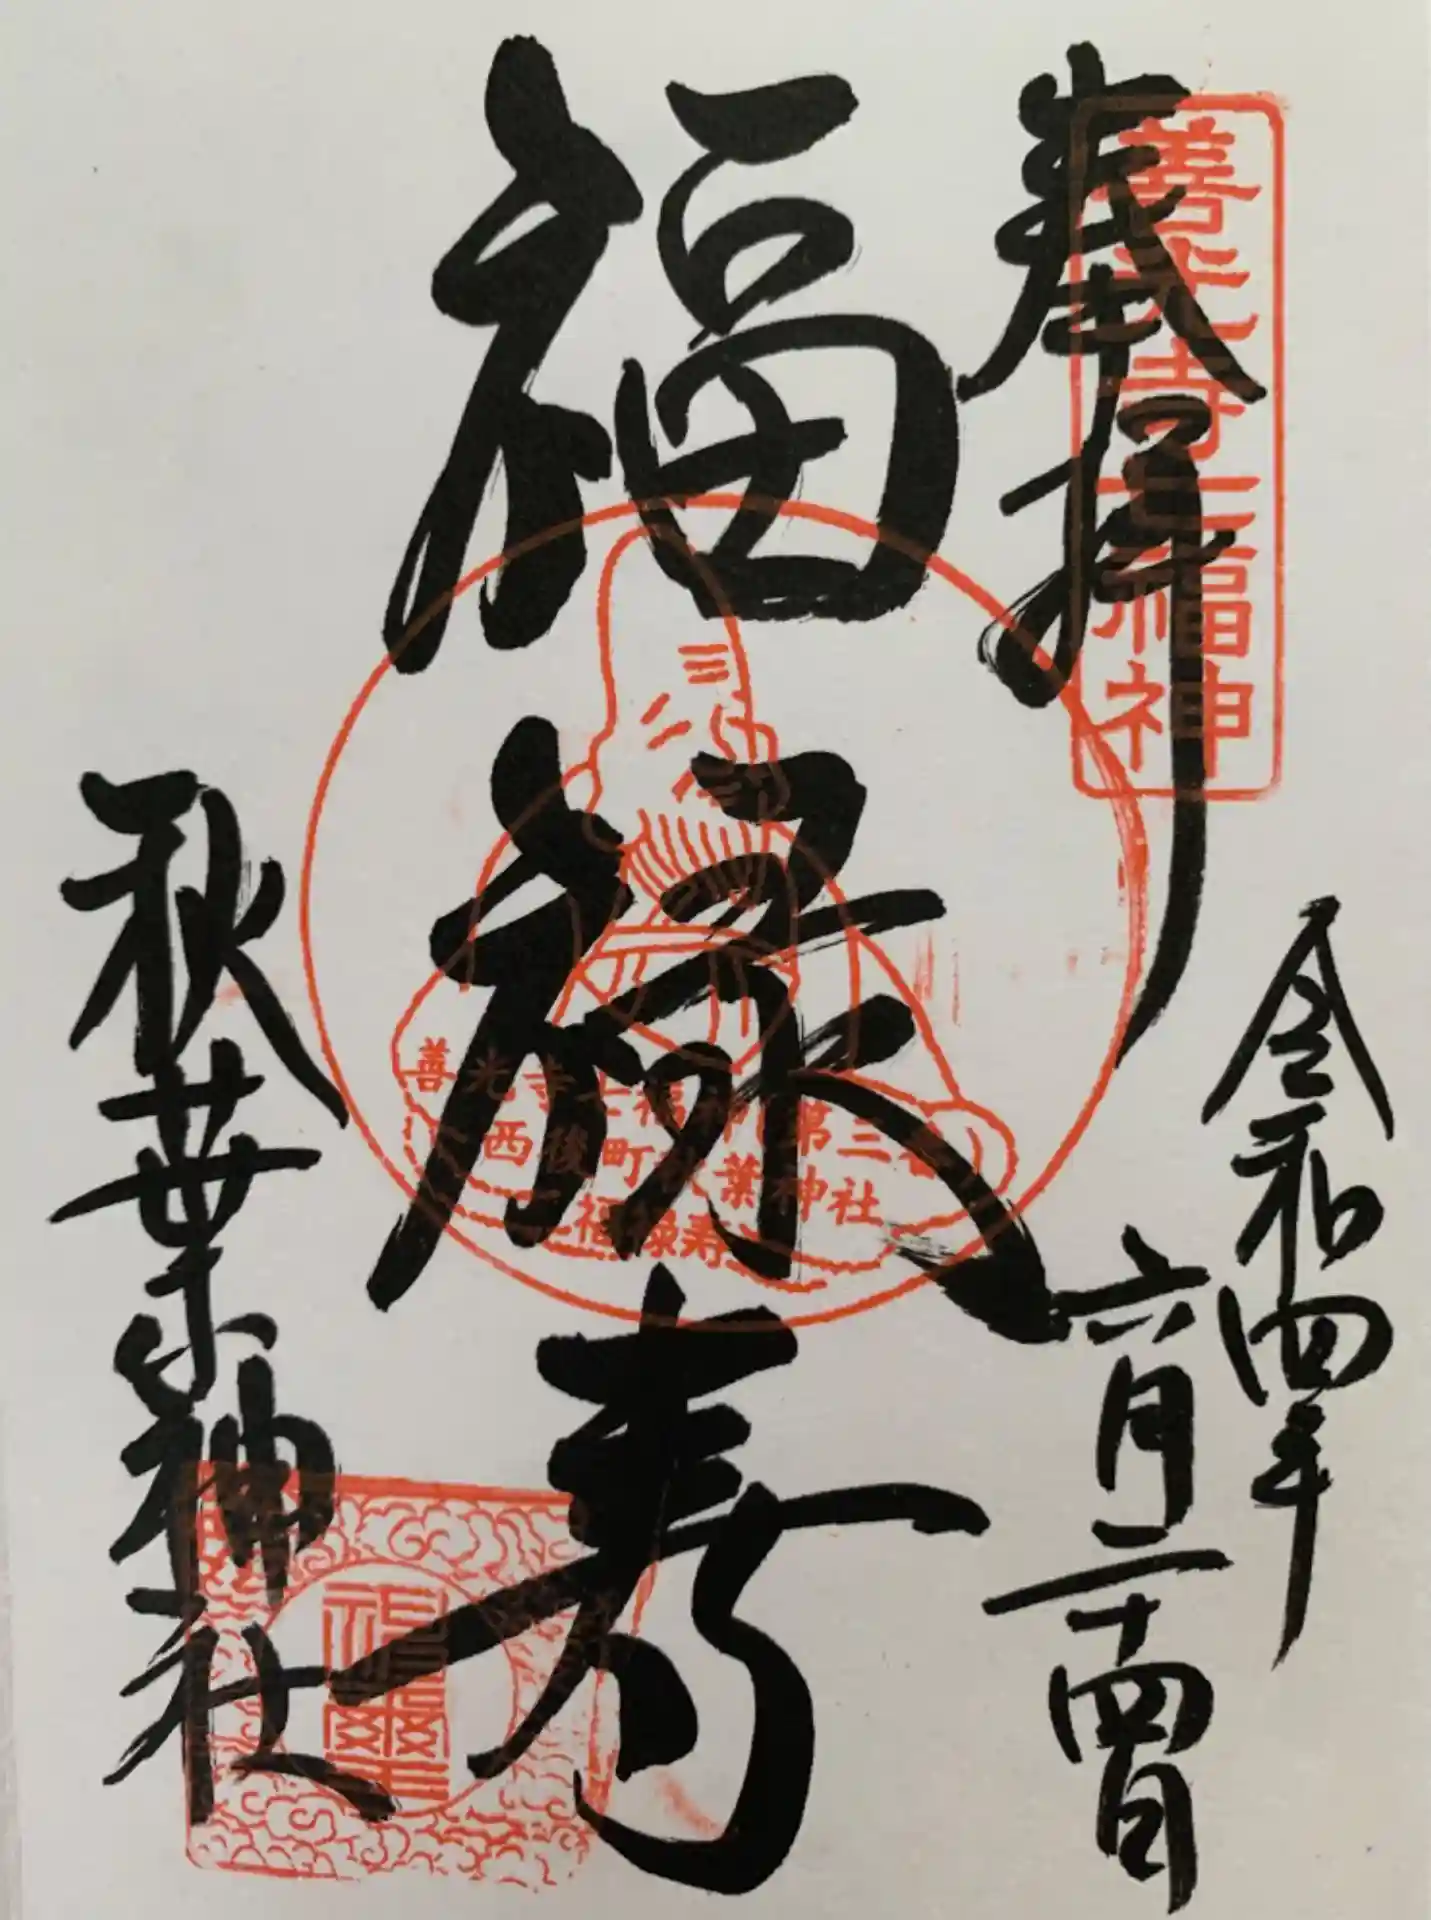 奉拝
善光寺七福神
令和四年
六月二十四日
福禄寿
善光寺七福神第三番
西後町秋葉神社
福禄寿
秋葉神社